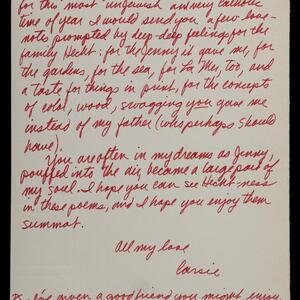 for this most unJewish and very Catholic
time of year I would send you a few love-
notes prompted by deep-deep feelings for the
family Hecht: for the Jenny it gave me, for
the gardens, for the sea, for La Mer, too, and
a taste for things in print, for the concepts
of color, wood, swagging you gave me
instead of my father (who perhaps should
have).
You are often in my dreams as Jenny,
pouffed into the air, became a large part of
my soul. I hope you can see Hecht-ness
in these poems, and I hope you enjoy them
summat.
All my love
Carsie
I've given a good friend you might enjoy